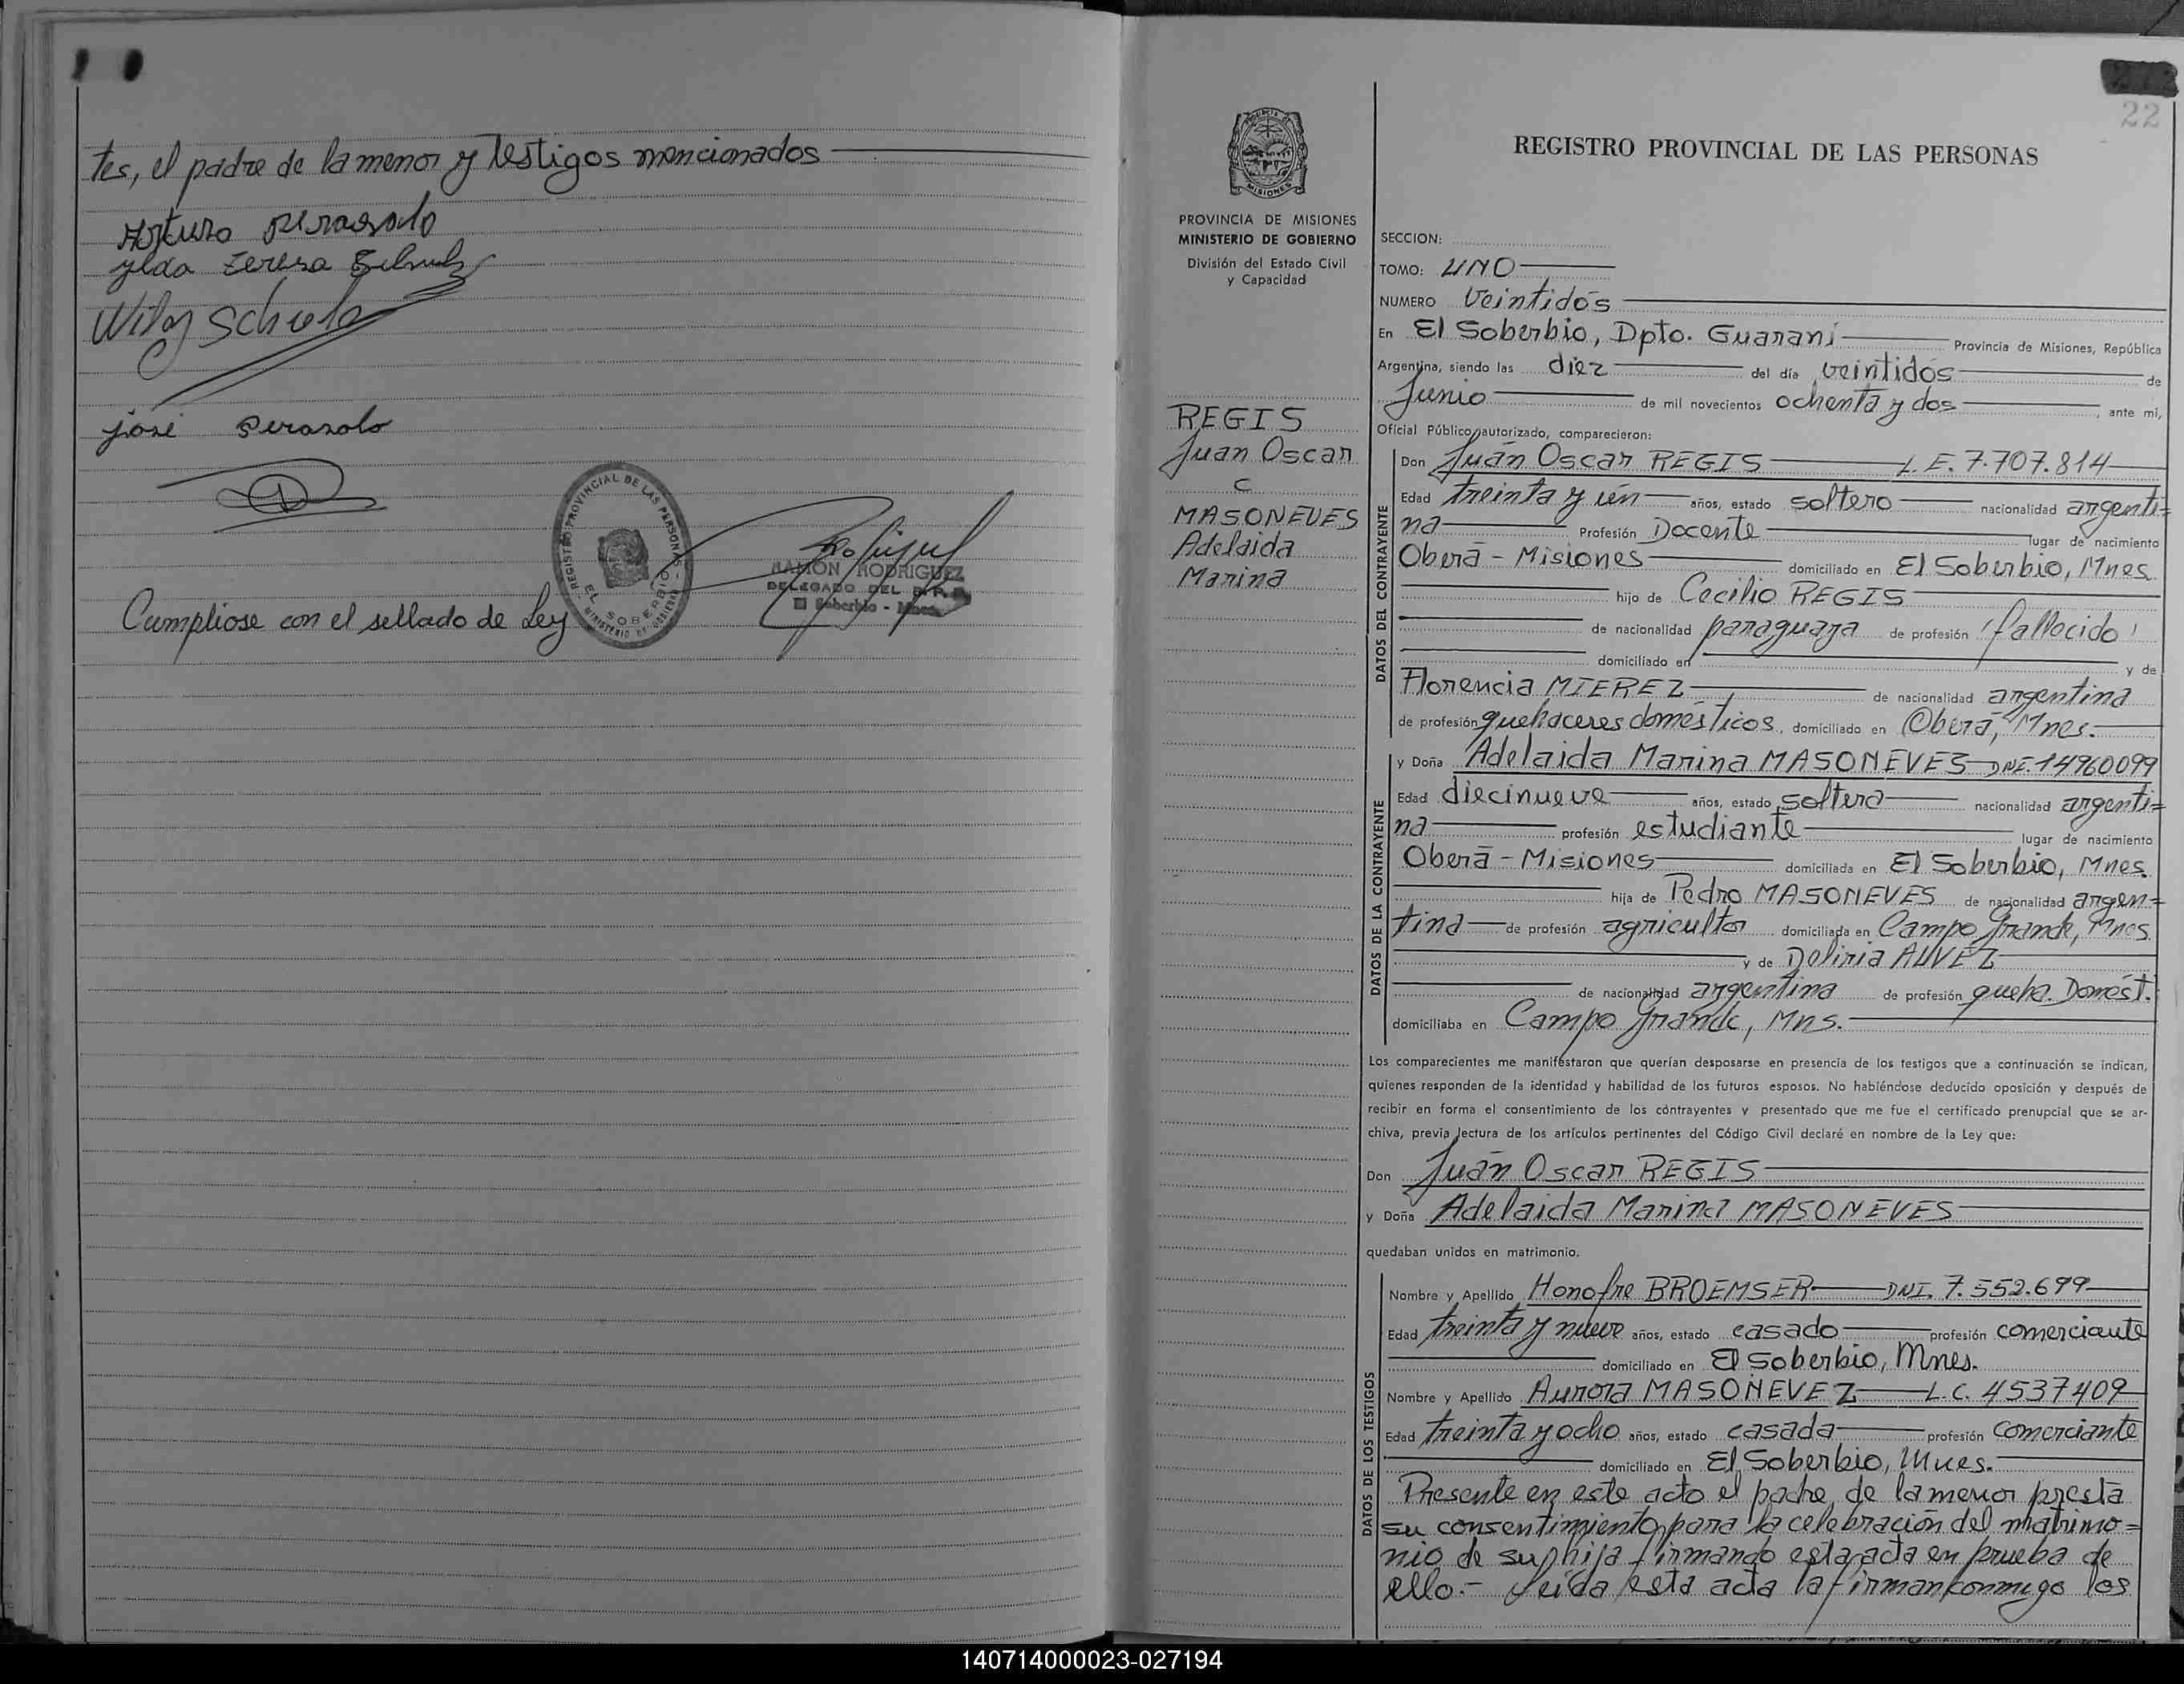 tes, el padre de la menor y testigos mencionados
Arturo
ylda Teresa
José
REGISTRO PROVINCIAL DE LAS PERSONAS
EL SOBERBIO
MINISTERIO DE GOBIERNO
RAMON RODRIGUEZ
DELEGADO DEL R. P. P.
El Soberbio - Mnes.
Cumpliose con el sellado de Ley
22
PROVINCIA DE MISIONES
MINISTERIO DE GOBIERNO
División del Estado Civil
y Capacidad
REGIS
Juan Oscar
c
MASONEVES
Adelaida
Marina
REGISTRO PROVINCIAL DE LAS PERSONAS
SECCION:
TOMO: UNO
NUMERO Veintidós
En El Soberbio, Dpto. Guaraní Provincia de Misiones, República
Argentina, siendo las diez del día veintidós de
Junio de mil novecientos ochenta y dos, ante mi,
Oficial Público autorizado, comparecieron:
DATOS DEL CONTRAYENTE
Don Juan Oscar REGIS L.E. 7.707.814
Edad treinta y un años, estado soltero nacionalidad argenti=
na Profesión Docente lugar de nacimiento
Oberá - Misiones domiciliado en El Soberbio, Mnes.
hijo de Cecilio REGIS
de nacionalidad paraguaya de profesión (fallecido)
domiciliado en y de
Florencia MIEREZ de nacionalidad argentina
de profesión quehaceres domésticos, domiciliado en Oberá, Mnes.
DATOS DE LA CONTRAYENTE
y Doña Adelaida Marina MASONEVES DNI. 14960099
Edad diecinueve años, estado soltera nacionalidad argenti=
na profesión estudiante lugar de nacimiento
Oberá - Misiones domiciliada en El Soberbio, Mnes.
hija de Pedro MASONEVES de nacionalidad argen=
tina de profesión agricultor domiciliada en Campo Grande, Mnes.
y de Deliria ALVEZ
de nacionalidad argentina de profesión queha. Domést.
domiciliaba en Campo Grande, Mns.
Los comparecientes me manifestaron que querían desposarse en presencia de los testigos que a continuación se indican,
quienes responden de la identidad y habilidad de los futuros esposos. No habiéndose deducido oposición y después de
recibir en forma el consentimiento de los contrayentes y presentado que me fue el certificado prenupcial que se ar-
chiva, previa lectura de los artículos pertinentes del Código Civil declaré en nombre de la Ley que:
Don Juan Oscar REGIS
y Doña Adelaida Marina MASONEVES
quedaban unidos en matrimonio.
DATOS DE LOS TESTIGOS
Nombre y Apellido Honofre BROEMSER DNI. 7.552.699
Edad treinta y nueve años, estado casado profesión comerciante
domiciliado en El Soberbio, Mnes.
Nombre y Apellido Aurora MASONEVEZ L.C. 4537409
Edad treinta y ocho años, estado casada profesión comerciante
domiciliado en El Soberbio, Mnes.
Presente en este acto el padre de la menor presta
su consentimiento para la celebración del matrimo=
nio de su hija firmando esta acta en prueba de
ello.- Leída esta acta la firman conmigo los
140714000023-027194